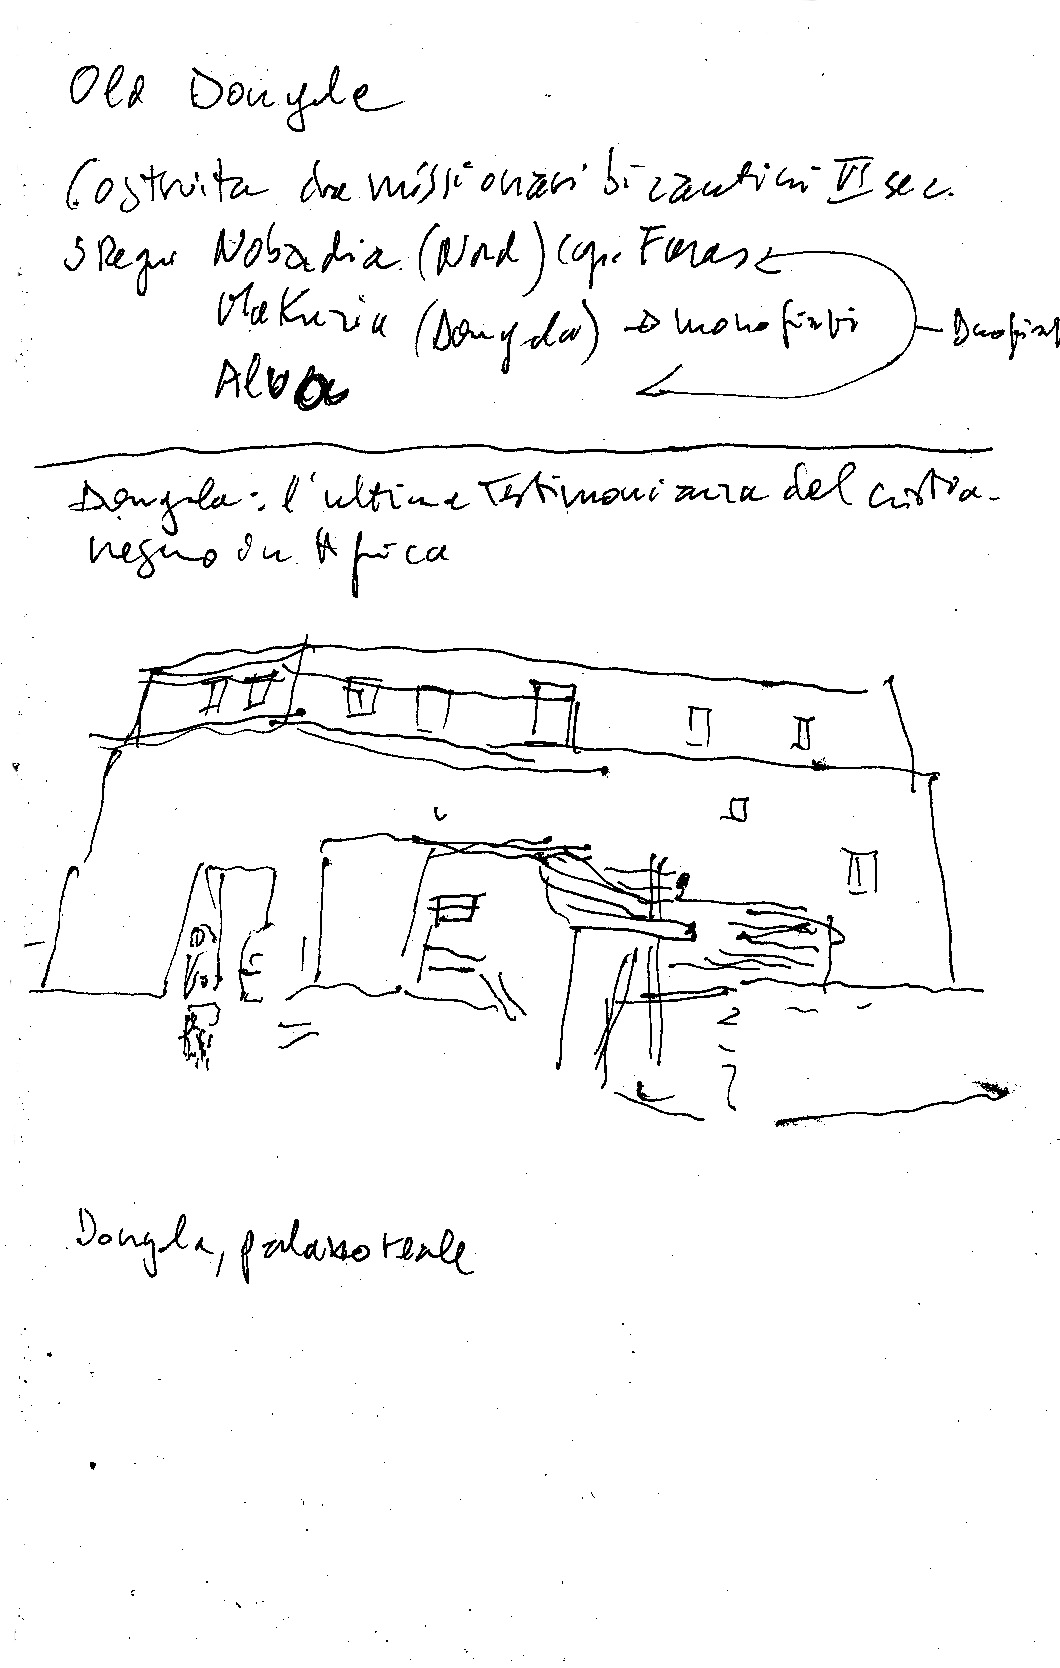 Old Dongola
Costruita da missionari bizantini VI sec.
3 Regni Nobadia (Nord) cap. Faras
Makuria (Dongola) → monofisiti
Duofisiti
Alwa
Dongola: l'ultima testimonianza del cristia-
nesimo in Africa
Dongola, palazzo reale